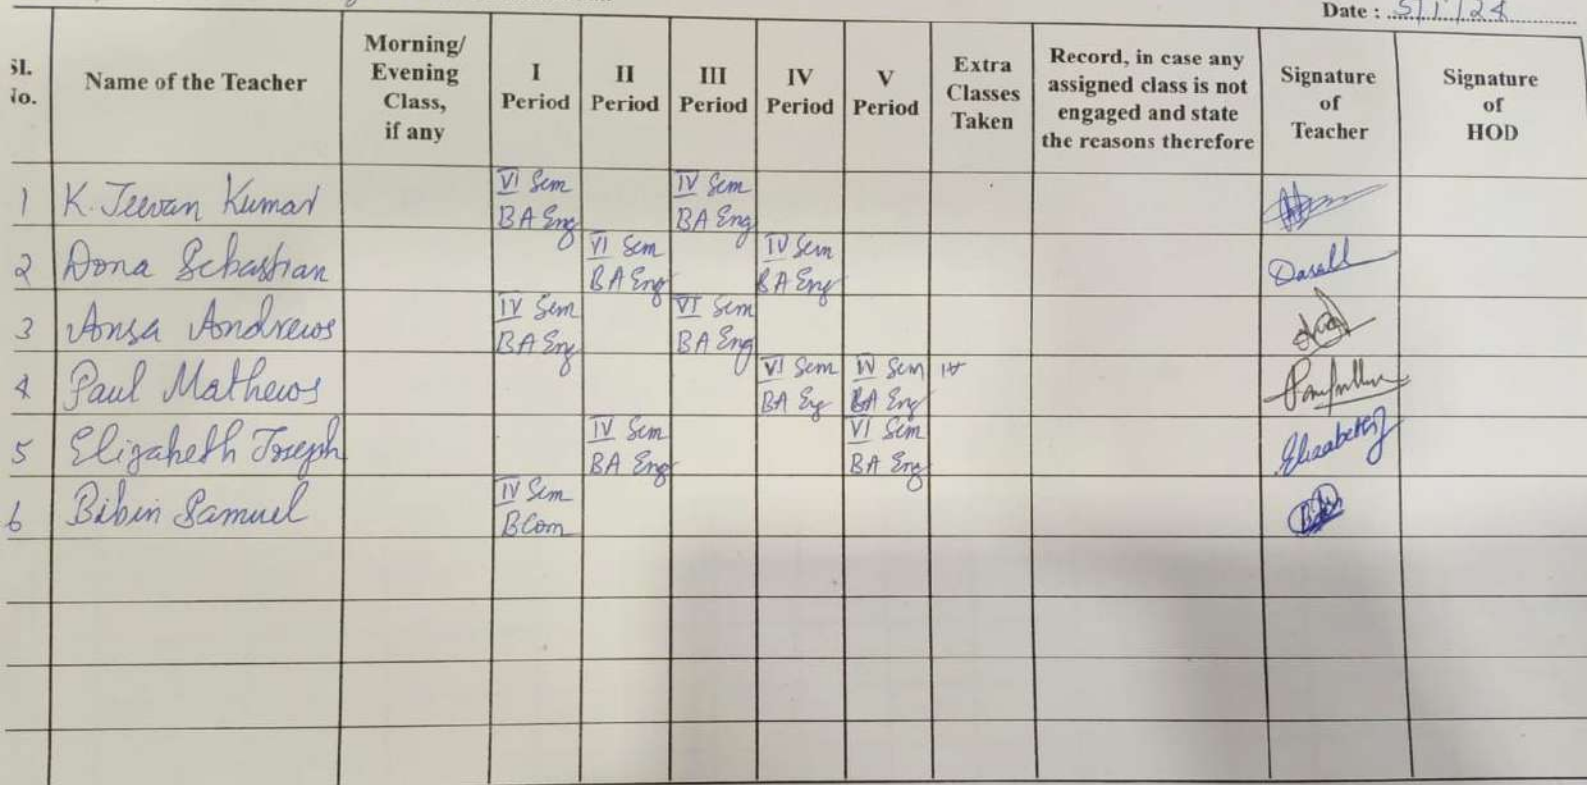 Date : 5/1/24
Sl. No. Name of the Teacher Morning/ Evening Class, if any I Period II Period III Period IV Period V Period Extra Classes Taken Record, in case any assigned class is not engaged and state the reasons therefore Signature of Teacher Signature of HOD
1 K. Jeevan Kumar VI Sem BA Eng IV Sem BA Eng
2 Dona Sebastian VI Sem BA Eng IV Sem BA Eng
3 Ansa Andrews IV Sem BA Eng VI Sem BA Eng
4 Paul Mathews VI Sem BA Eng IV Sem BA Eng
5 Elizabeth Joseph IV Sem BA Eng VI Sem BA Eng Elizabeth J
6 Bibin Samuel IV Sem BCom